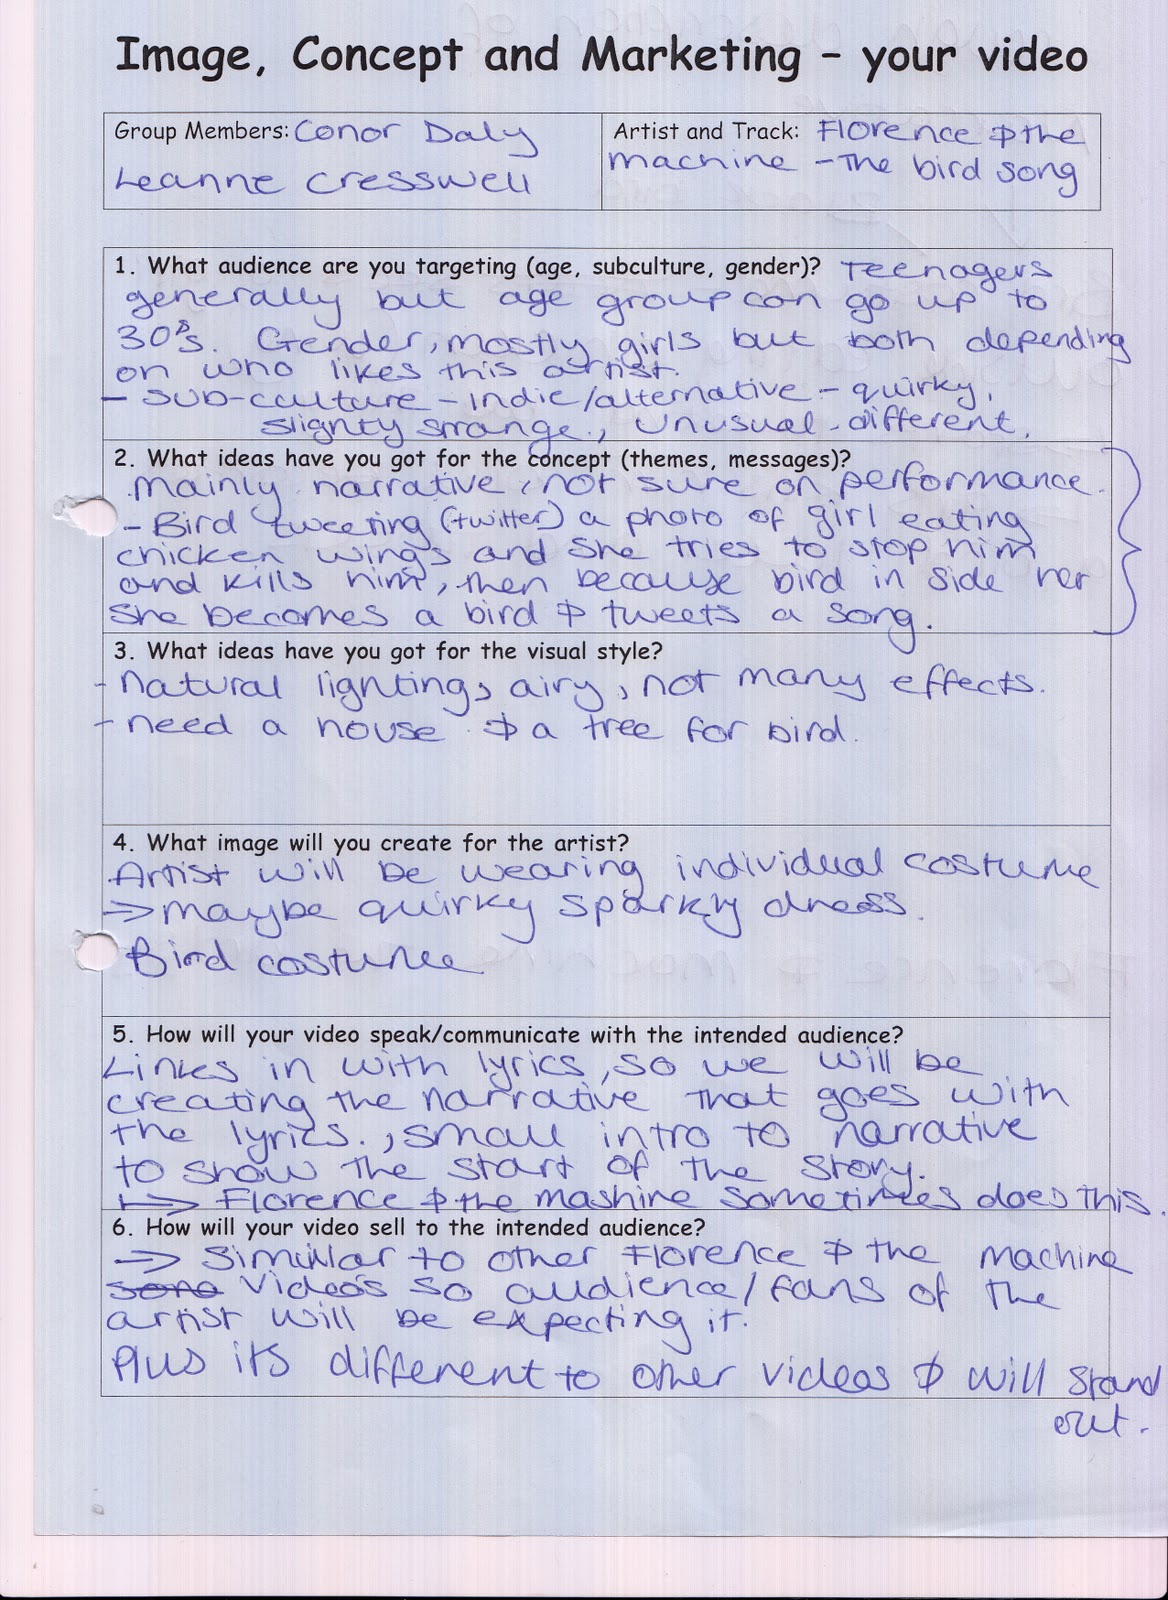 Image, Concept and Marketing – your video
Group Members: Conor Daly
Leanne Cresswell
Artist and Track: Florence & the
machine - The bird song
1. What audience are you targeting (age, subculture, gender)? Teenagers
generally but age group can go up to
30's. Gender, mostly girls but both depending
on who likes this artist.
- Sub-culture - indie/alternative - quirky,
slighty strange, unusual - different.
2. What ideas have you got for the concept (themes, messages)?
Mainly narrative, not sure on performance.
- Bird tweeting (twitter) a photo of girl eating
chicken wings and she tries to stop him
and kills him, then because bird in side her
she becomes a bird & tweets a song.
3. What ideas have you got for the visual style?
- natural lighting, airy, not many effects.
- need a house & a tree for bird.
4. What image will you create for the artist?
Artist will be wearing individual costume
→ maybe quirky sparkly dress.
Bird costume
5. How will your video speak/communicate with the intended audience?
Links in with lyrics, so we will be
creating the narrative that goes with
the lyrics., small intro to narrative
to show the start of the story.
↳ Florence & the mashine sometimes does this.
6. How will your video sell to the intended audience?
→ Simillar to other Florence & the machine
videos so audience/fans of the
artist will be expecting it.
Plus its different to other videos & will stand
out.